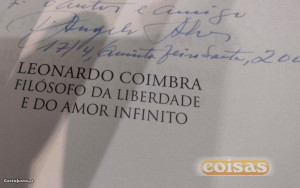 e amigo
Angelo Alves
17/4, Quinta feira Santa, 200
LEONARDO COIMBRA
FILÓSOFO DA LIBERDADE
E DO AMOR INFINITO
coisas